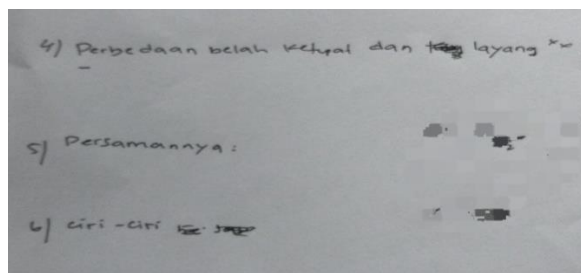 4) Perbedaan belah ketupat dan layang
5) Persamannya :
6) ciri-ciri